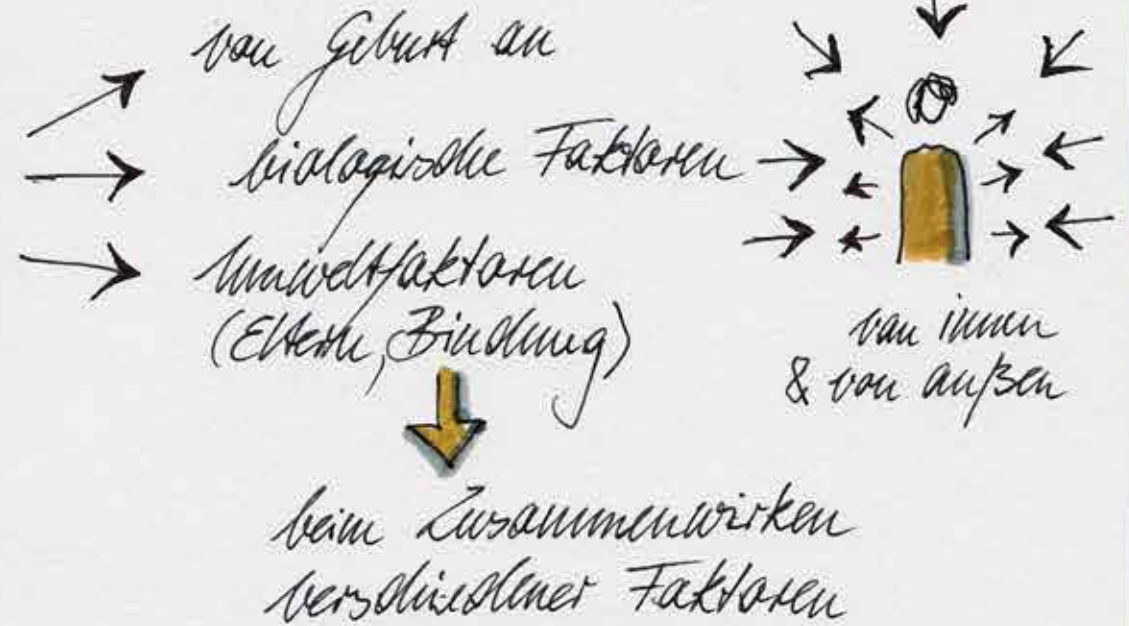 von Geburt an
biologische Faktoren
Umweltfaktoren
(Eltern, Bindung)
von innen
& von außen
beim Zusammenwirken
verschiedener Faktoren